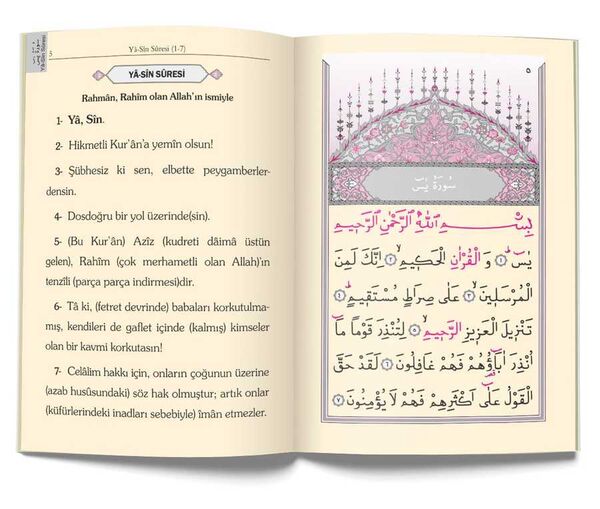 سورة يس
Yâ-Sîn Sûresi
5
Yâ-Sîn Sûresi (1-7)
YÂ-SİN SÛRESİ
Rahmân, Rahîm olan Allah'ın ismiyle
1- Yâ, Sîn.
2- Hikmetli Kur'ân'a yemîn olsun!
3- Şübhesiz ki sen, elbette peygamberler-
densin.
4- Dosdoğru bir yol üzerinde(sin).
5- (Bu Kur'ân) Azîz (kudreti dâimâ üstün
gelen), Rahîm (çok merhametli olan) Allah'ın
tenzîli (parça parça indirmesi)dir.
6- Tâ ki, (fetret devrinde) babaları korkutulma-
mış, kendileri de gaflet içinde (kalmış) kimseler
olan bir kavmi korkutasın!
7- Celâlim hakkı için, onların çoğunun üzerine
(azab husûsundaki) söz hak olmuştur; artık onlar
(küfürlerindeki inadları sebebiyle) îmân etmezler.
٥
سُورَةُ يٰسٓ
بِسْمِ اللّٰهِ الرَّحْمٰنِ الرَّحِيمِ
يٰسٓ ﴿١﴾ وَالْقُرْاٰنِ الْحَكِيمِ ﴿٢﴾ اِنَّكَ لَمِنَ
الْمُرْسَلِينَ ﴿٣﴾ عَلٰى صِرَاطٍ مُسْتَقِيمٍ ﴿٤﴾
تَنْزِيلَ الْعَزِيزِ الرَّحِيمِ ﴿٥﴾ لِتُنْذِرَ قَوْمًا مَٓا
اُنْذِرَ اٰبَٓاؤُ۬هُمْ فَهُمْ غَافِلُونَ ﴿٦﴾ لَقَدْ حَقَّ
الْقَوْلُ عَلٰٓى اَكْثَرِهِمْ فَهُمْ لَا يُؤْمِنُونَ ﴿٧﴾